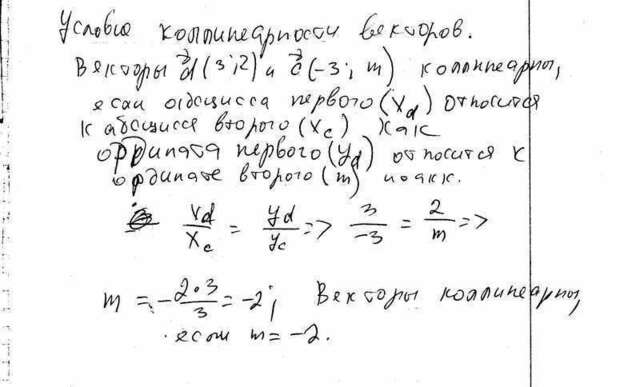 Условие коллинеарности векторов.
Векторы d(3;2) и c(-3; m) коллинеарны,
если абсцисса первого (Xd) относится
к абсцисса второго (Xc) как
ордината первого (yd) относится к
ординате второго (m)
Xd/Xc = yd/yc => 3/-3 = 2/m =>
m = -2·3/3 = -2; Векторы коллинеарны,
если m = -2.